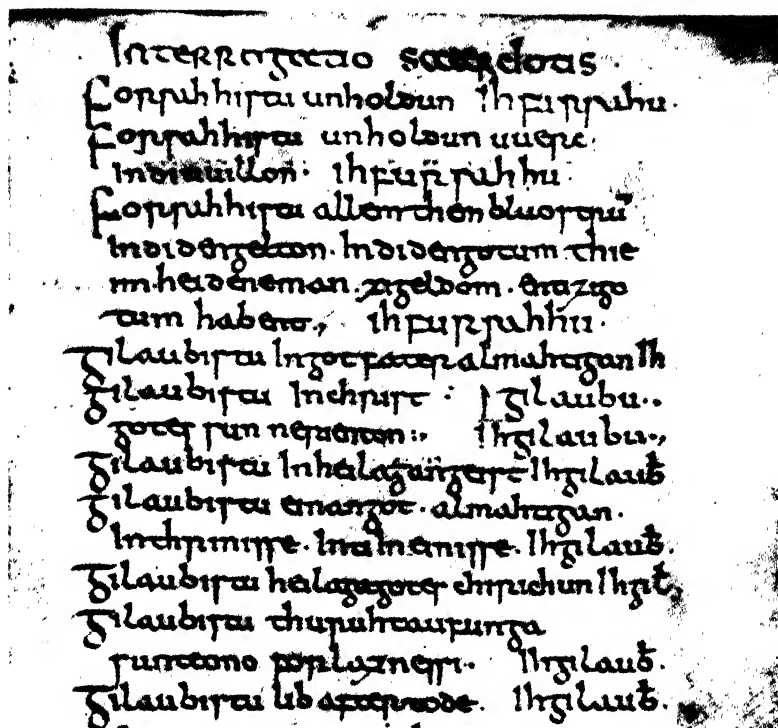 Interrogatio sacerdotis.
Forsahhistu unholdun Ih fursahu.
Forsahhistu unholdun uuerc.
indi uuillon. ihfursahhu.
Forsahhistu allem them bluostrū
indidengelton. Indidengotum. thie
im. heideneman. zigeldom. entizigo
tum habent., ihfursahhu.
Gilaubistu Ingotfater almahtigan Ih
Gilaubistu Inchrist : Ihgilaubu.
gotes sun nerienton:. Ihgilaubu.,
Gilaubistu Inheilagangeist Ihgilaub̄
Gilaubistu einangot. almahtigan.
Inthrinisse. Inti In einisse. Ihgilaub̄.
Gilaubistu heilagagotes chirichun Ihgil̄.
Gilaubistu thuruhtaufunga
sunteono forlaznessi. Ihgilaub̄.
Gilaubistu lib aftertode. Ihgilaub̄.